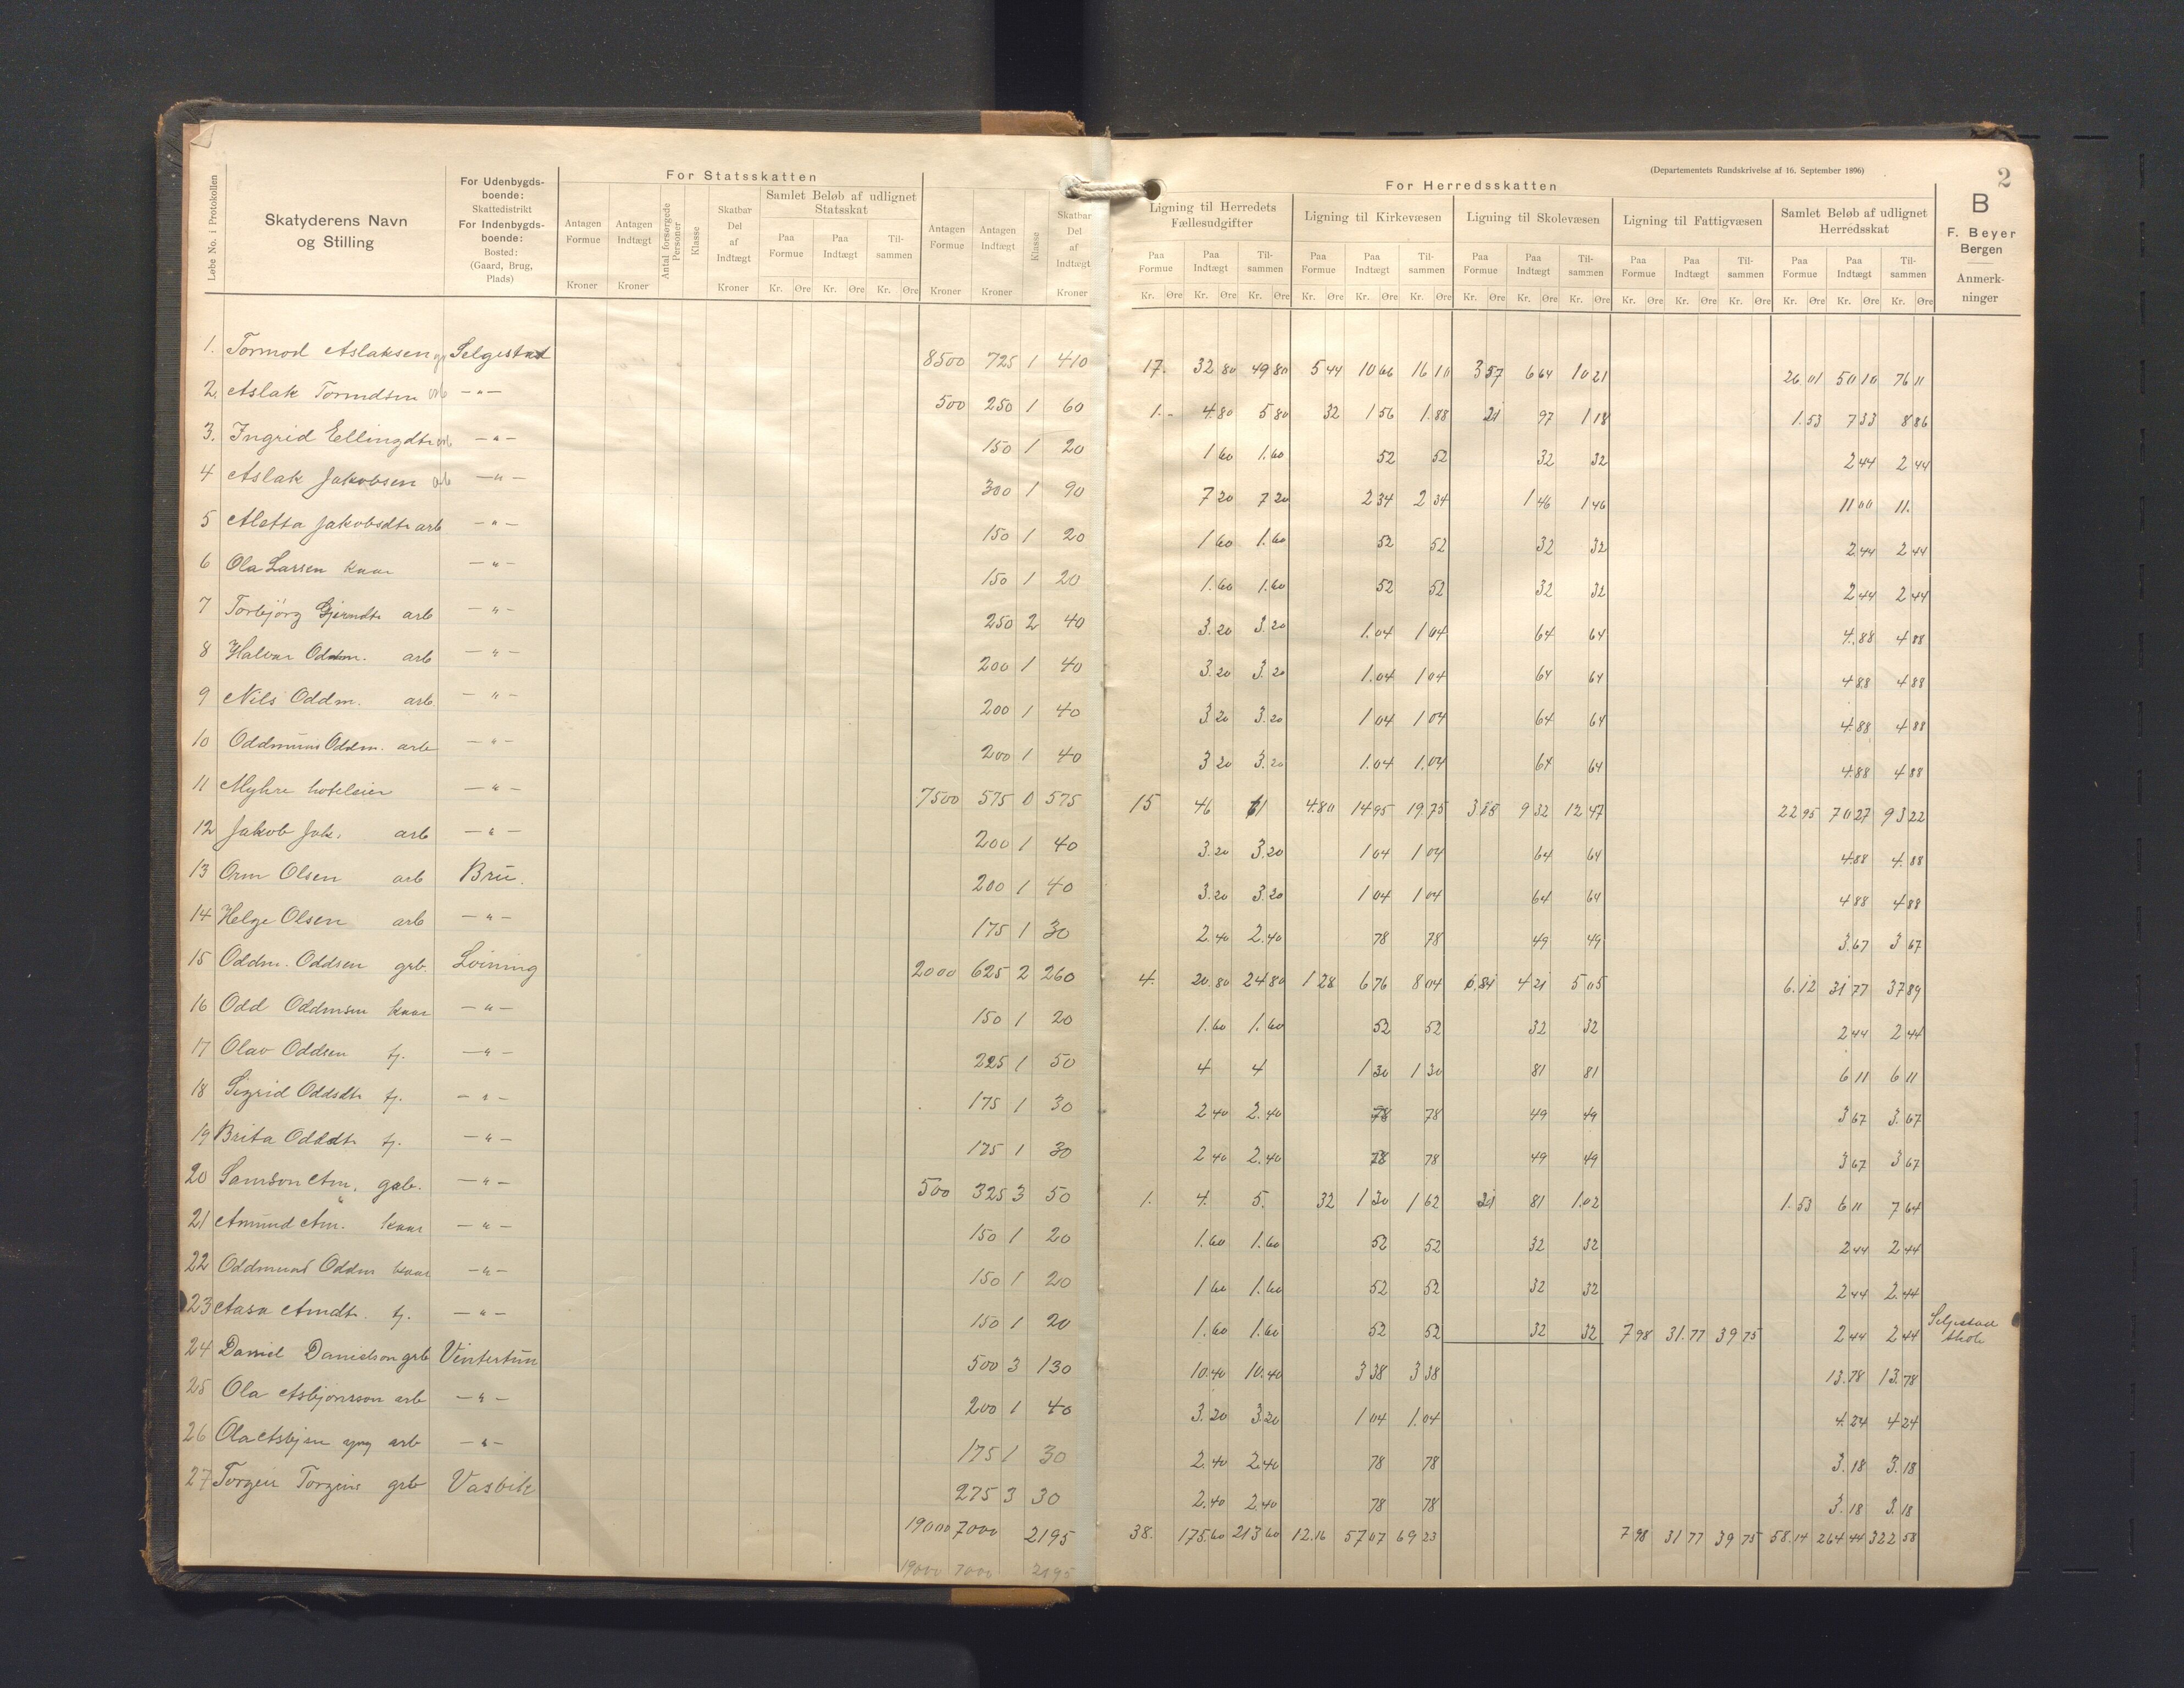 (Departementets Rundskrivelse af 16. September 1896)
2
Løbe No. i Protokollen
Skatyderens Navn
og Stilling
For Udenbygds-
boende:
Skattedistrikt
For Indenbygds-
boende:
Bosted:
(Gaard, Brug,
Plads)
For Statsskatten
Antagen Formue Kroner
Antagen Indtægt Kroner
Antal forsørgede Personer
Klasse
Skatbar Del af Indtægt Kroner
Samlet Beløb af udlignet Statsskat
Paa Formue Kr. Øre
Paa Indtægt Kr. Øre
Til-sammen Kr. Øre
Antagen Formue Kroner
Antagen Indtægt Kroner
Klasse
Skatbar Del af Indtægt Kroner
For Herredsskatten
Ligning til Herredets Fællesudgifter
Paa Formue Kr. Øre
Paa Indtægt Kr. Øre
Til-sammen Kr. Øre
Ligning til Kirkevæsen
Paa Formue Kr. Øre
Paa Indtægt Kr. Øre
Til-sammen Kr. Øre
Ligning til Skolevæsen
Paa Formue Kr. Øre
Paa Indtægt Kr. Øre
Til-sammen Kr. Øre
Ligning til Fattigvæsen
Paa Formue Kr. Øre
Paa Indtægt Kr. Øre
Til-sammen Kr. Øre
Samlet Beløb af udlignet Herredsskat
Paa Formue Kr. Øre
Paa Indtægt Kr. Øre
Til-sammen Kr. Øre
B
F. Beyer
Bergen
Anmerk-
ninger
1. Tormod Aslaksen Selgestad 8500 725 1 410 17. 32 80 49 80 5 44 10 66 16 10 3 57 6 64 10 21 26 01 50 10 76 11
2. Aslak Tormdsen arb -"- 500 250 1 60 1.- 4.80 5 80 32 1 56 1.88 21 97 1 18 1.53 7 33 8 86
3. Ingrid Ellingdtr arb -"- 150 1 20 1 60 1.60 52 52 32 32 2 44 2 44
4 Aslak Jakobsen arb -"- 300 1 90 7 20 7 20 2 34 2 34 1 46 1 46 11 00 11.
5 Aletta Jakobsdtr arb -"- 150 1 20 1 60 1.60 52 52 32 32 2 44 2 44
6 Ola Larsen kaar -"- 150 1 20 1.60 1.60 52 52 32 32 2 44 2 44
7 Torbjörg arb -"- 250 2 40 3.20 3.20 1.04 1 04 64 64 4.88 4 88
8 Halvar Oddm. arb -"- 200 1 40 3.20 3.20 1.04 1 04 64 64 4 88 4 88
9 Nils Oddm. arb -"- 200 1 40 3 20 3.20 1 04 1 04 64 64 4.88 4 88
10 Oddmund Oddm. arb -"- 200 1 40 3 20 3.20 1.04 1.04 64 64 4.88 4 88
11 Myhre hoteleier -"- 7500 575 0 575 15 46 61 4.80 14 95 19.75 3 15 9 32 12 47 22 95 70 27 93 22
12 Jakob Jak. arb -"- 200 1 40 3.20 3.20 1 04 1 04 64 64 4.88 4.88
13 Orm Olsen arb Brü. 200 1 40 3.20 3.20 1 04 1 04 64 64 4 88 4 88
14 Helge Olsen arb -"- 175 1 30 2.40 2.40 78 78 49 49 3.67 3 67
15 Oddm. Oddsen grb. Löining 2000 625 2 260 4. 20.80 24 80 1 28 6 76 8 04 0,84 4 21 5 05 6.12 31 77 37 89
16 Odd Oddmsen kaar -"- 150 1 20 1.60 1.60 52 52 32 32 2 44 2 44
17 Olav Oddsen tj. -"- 225 1 50 4 4 1 30 1 30 81 81 6 11 6 11
18 Sigrid Oddsdtr tj. -"- 175 1 30 2 40 2.40 78 78 49 49 3 67 3.67
19 Brita Oddsdtr tj. -"- 175 1 30 2 40 2.40 78 78 49 49 3 67 3 67
20 Samson Am. grb. -"- 500 325 3 50 1. 4. 5. 32 1 30 1 62 21 81 1.02 1.53 6 11 7 64
21 Amund Am. kaar -"- 150 1 20 1.60 1.60 52 52 32 32 2 44 2.44
22 Oddmund Oddm kaar -"- 150 1 20 1 60 1.60 52 52 32 32 2 44 2.44
23 Aasa Amdtr. tj. -"- 150 1 20 1.60 1.60 52 52 32 32 7 98 31.77 39 75 2 44 2 44 Selgestad
skole
24 Daniel Danielson grb Vintertün 500 3 130 10.40 10.40 3 38 3 38 13.78 13.78
25 Ola Asbjörnson arb -"- 200 1 40 3.20 3.20 1 04 1.04 4.24 4 24
26 Ola Asbjsn yng arb -"- 175 1 30 2.40 2.40 78 78 3.18 3.18
27 Torgeir grb Vasvik 275 3 30 2.40 2.40 78 78 3.18 3.18
19000 7000 2195 38. 175.60 213 60 12.16 57 07 69 23 7 98 31 77 39 75 58.14 264 44 322 58
19000 7000 2195